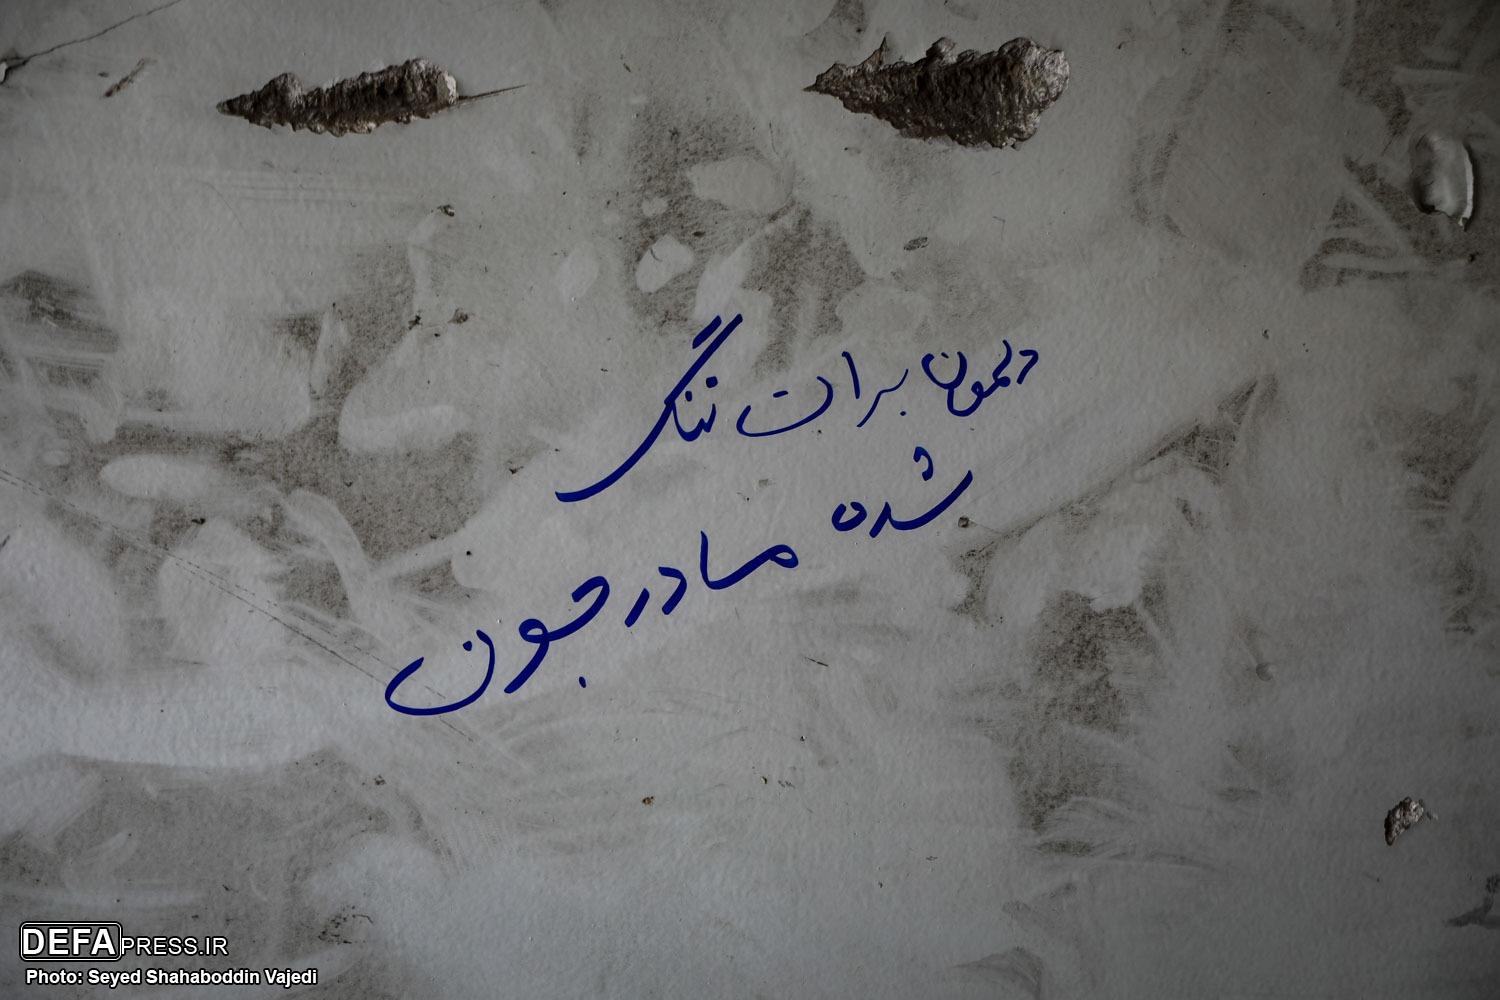 دلمون برات تنگ
شده مادرجون
DEFAPRESS.IR
Photo: Seyed Shahaboddin Vajedi